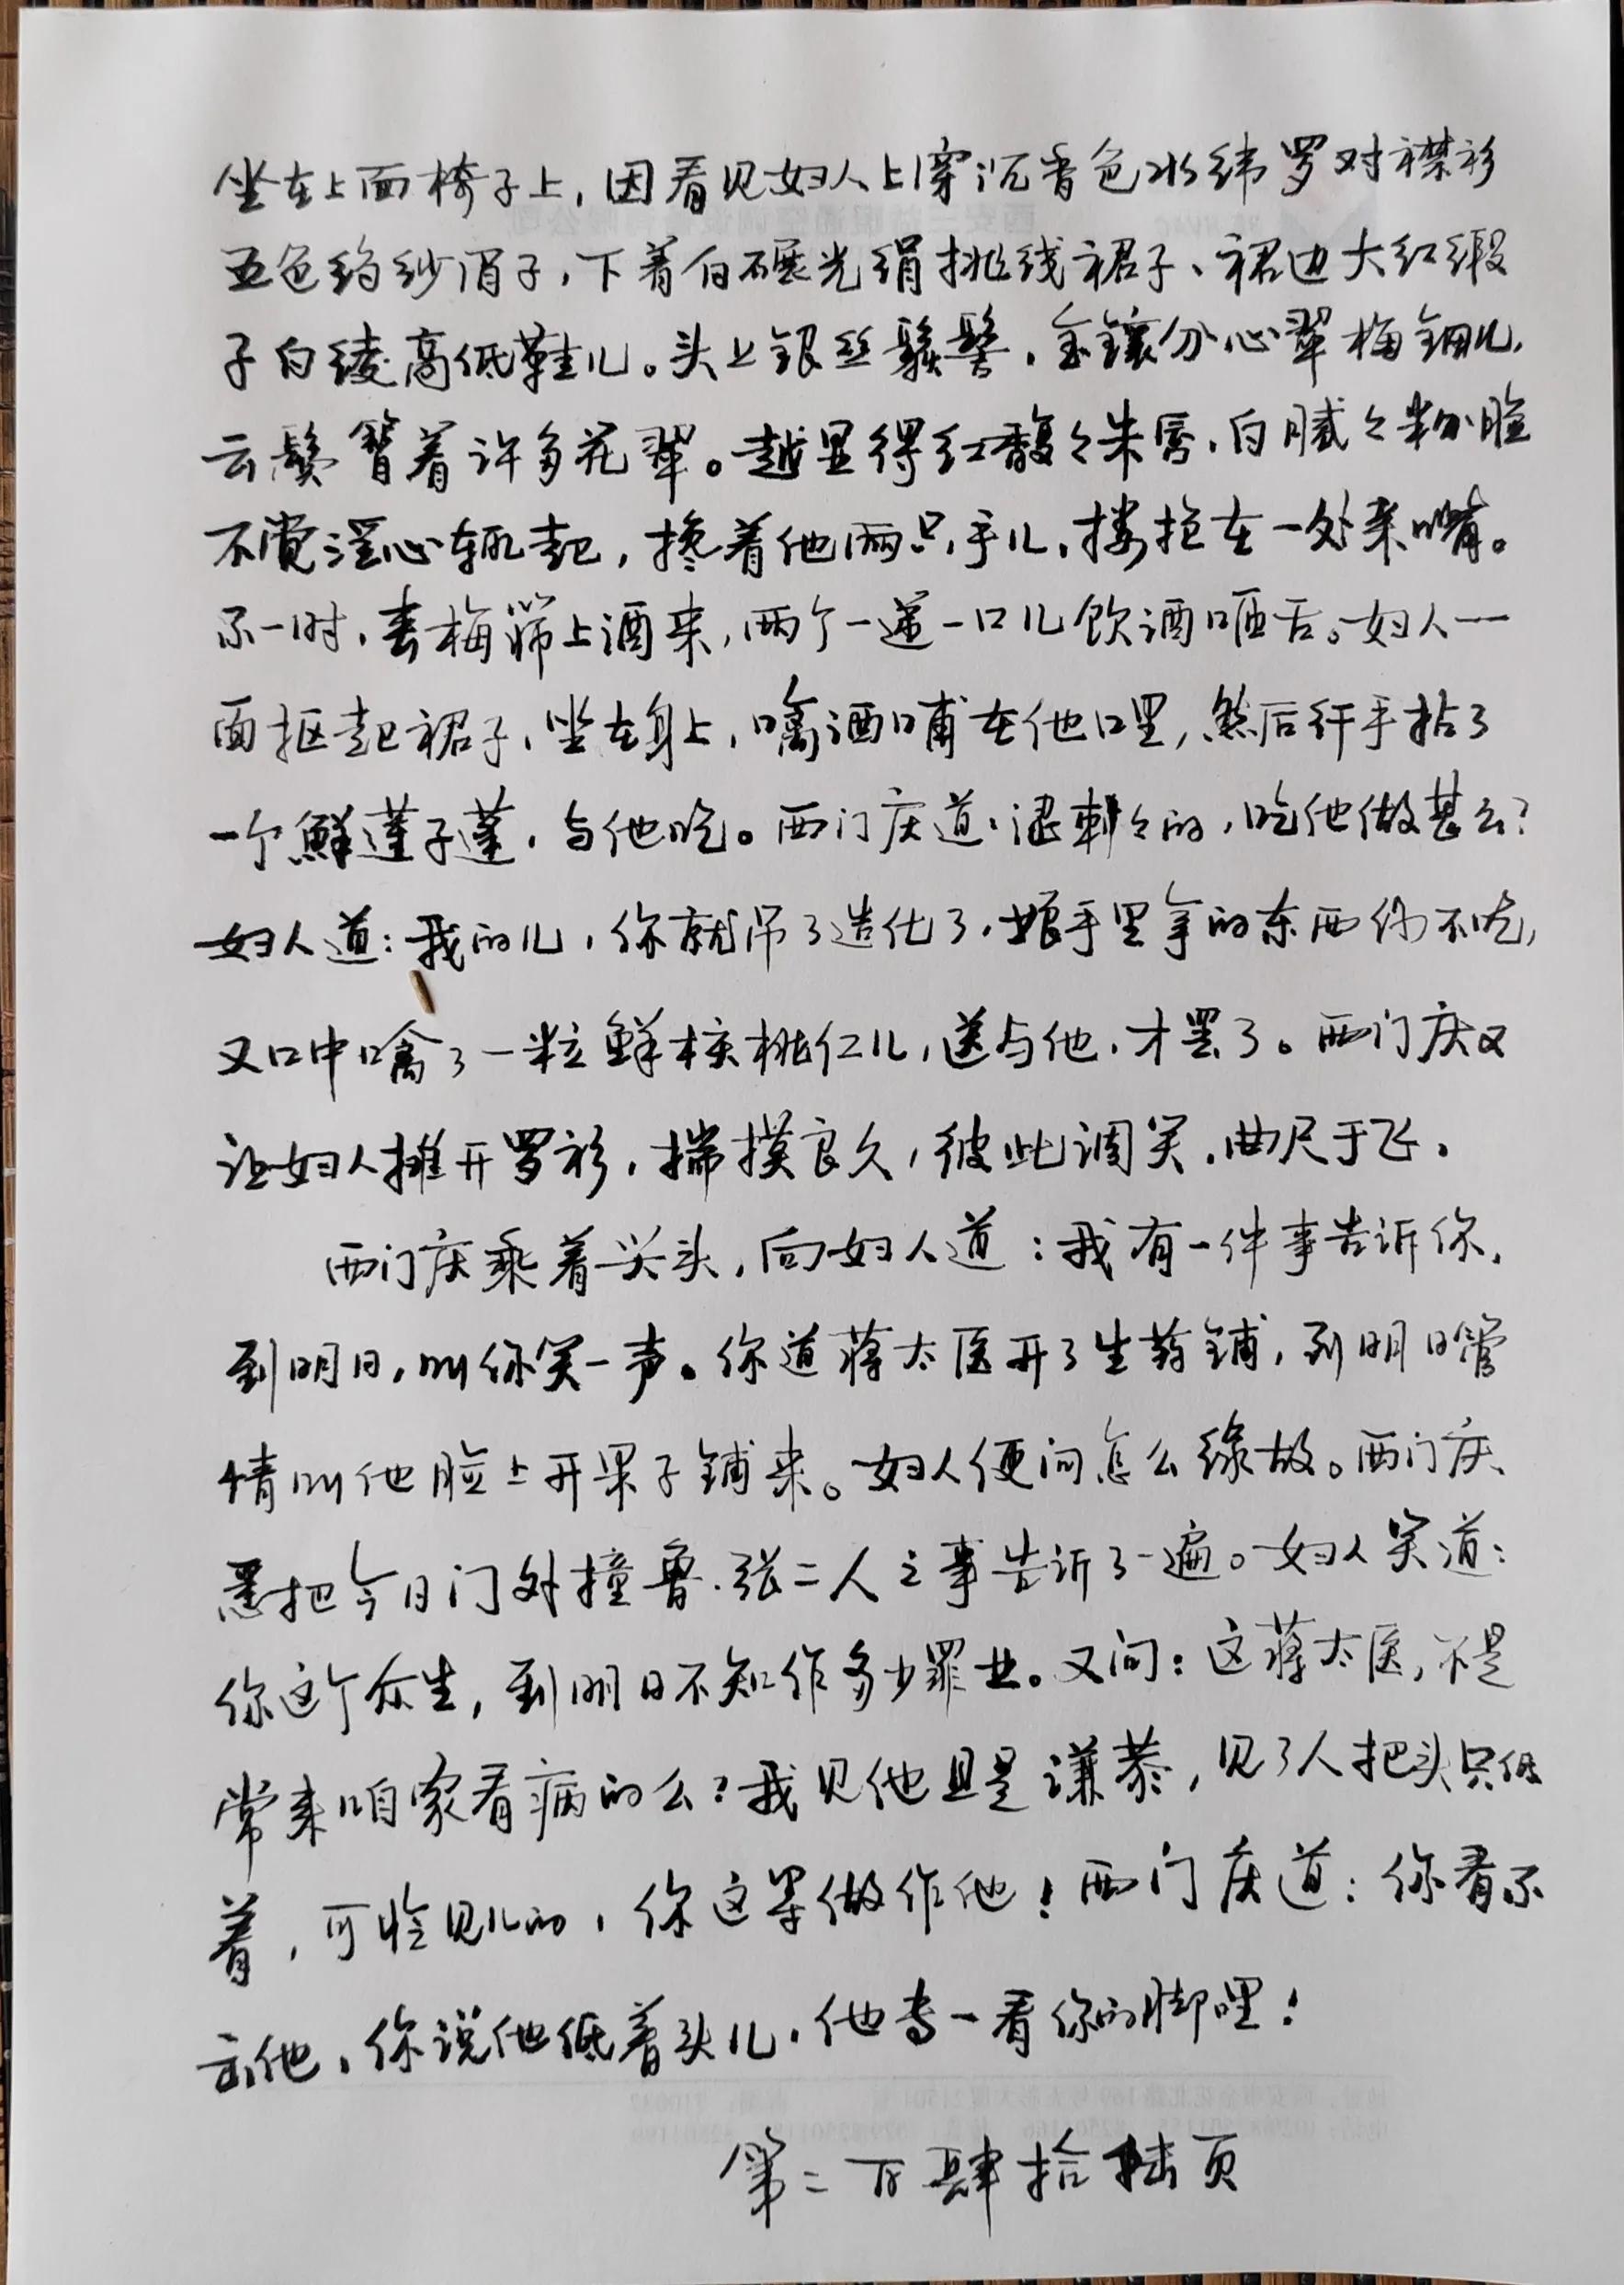 坐在上面椅子上，因看见妇人上穿沉香色水纬罗对襟衫
五色绉纱眉子，下着白碾光绢挑线裙子、裙边大红缎
子白绫高低鞋儿。头上银丝䯼髻，金镶分心翠梅钿儿，
云鬓簪着许多花翠。越显得红馥々朱唇，白腻々粉脸
不觉淫心辄起，搀着他两只手儿，搂抱在一处亲嘴。
不一时，春梅筛上酒来，两个一递一口儿饮酒咂舌。妇人一
面抠起裙子，坐在身上，噙酒哺在他口里，然后纤手拈了
一个鲜莲子蓬，与他吃。西门庆道：涩剌々的，吃他做甚么？
妇人道：我的儿，你就吊了造化了，娘手里拿的东西你不吃，
又口中噙了一粒鲜核桃仁儿，送与他，才罢了。西门庆又
让妇人摊开罗衫，揣摸良久，彼此调笑，曲尺于飞。
西门庆乘着兴头，向妇人道：我有一件事告诉你，
到明日，叫你笑一声。你道蒋太医开了生药铺，到明日管
情叫他脸上开果子铺来。妇人便问怎么缘故。西门庆
悉把今日门外撞鲁、张二人之事告诉了一遍。妇人笑道：
你这个众生，到明日不知作多少罪业。又问：这蒋太医，不是
常来咱家看病的么？我见他且是谦恭，见了人把头只低
着，可怜见儿的，你这等做作他！西门庆道：你看不
出他，你说他低着头儿，他专一看你的脚哩！
第二百肆拾陆页